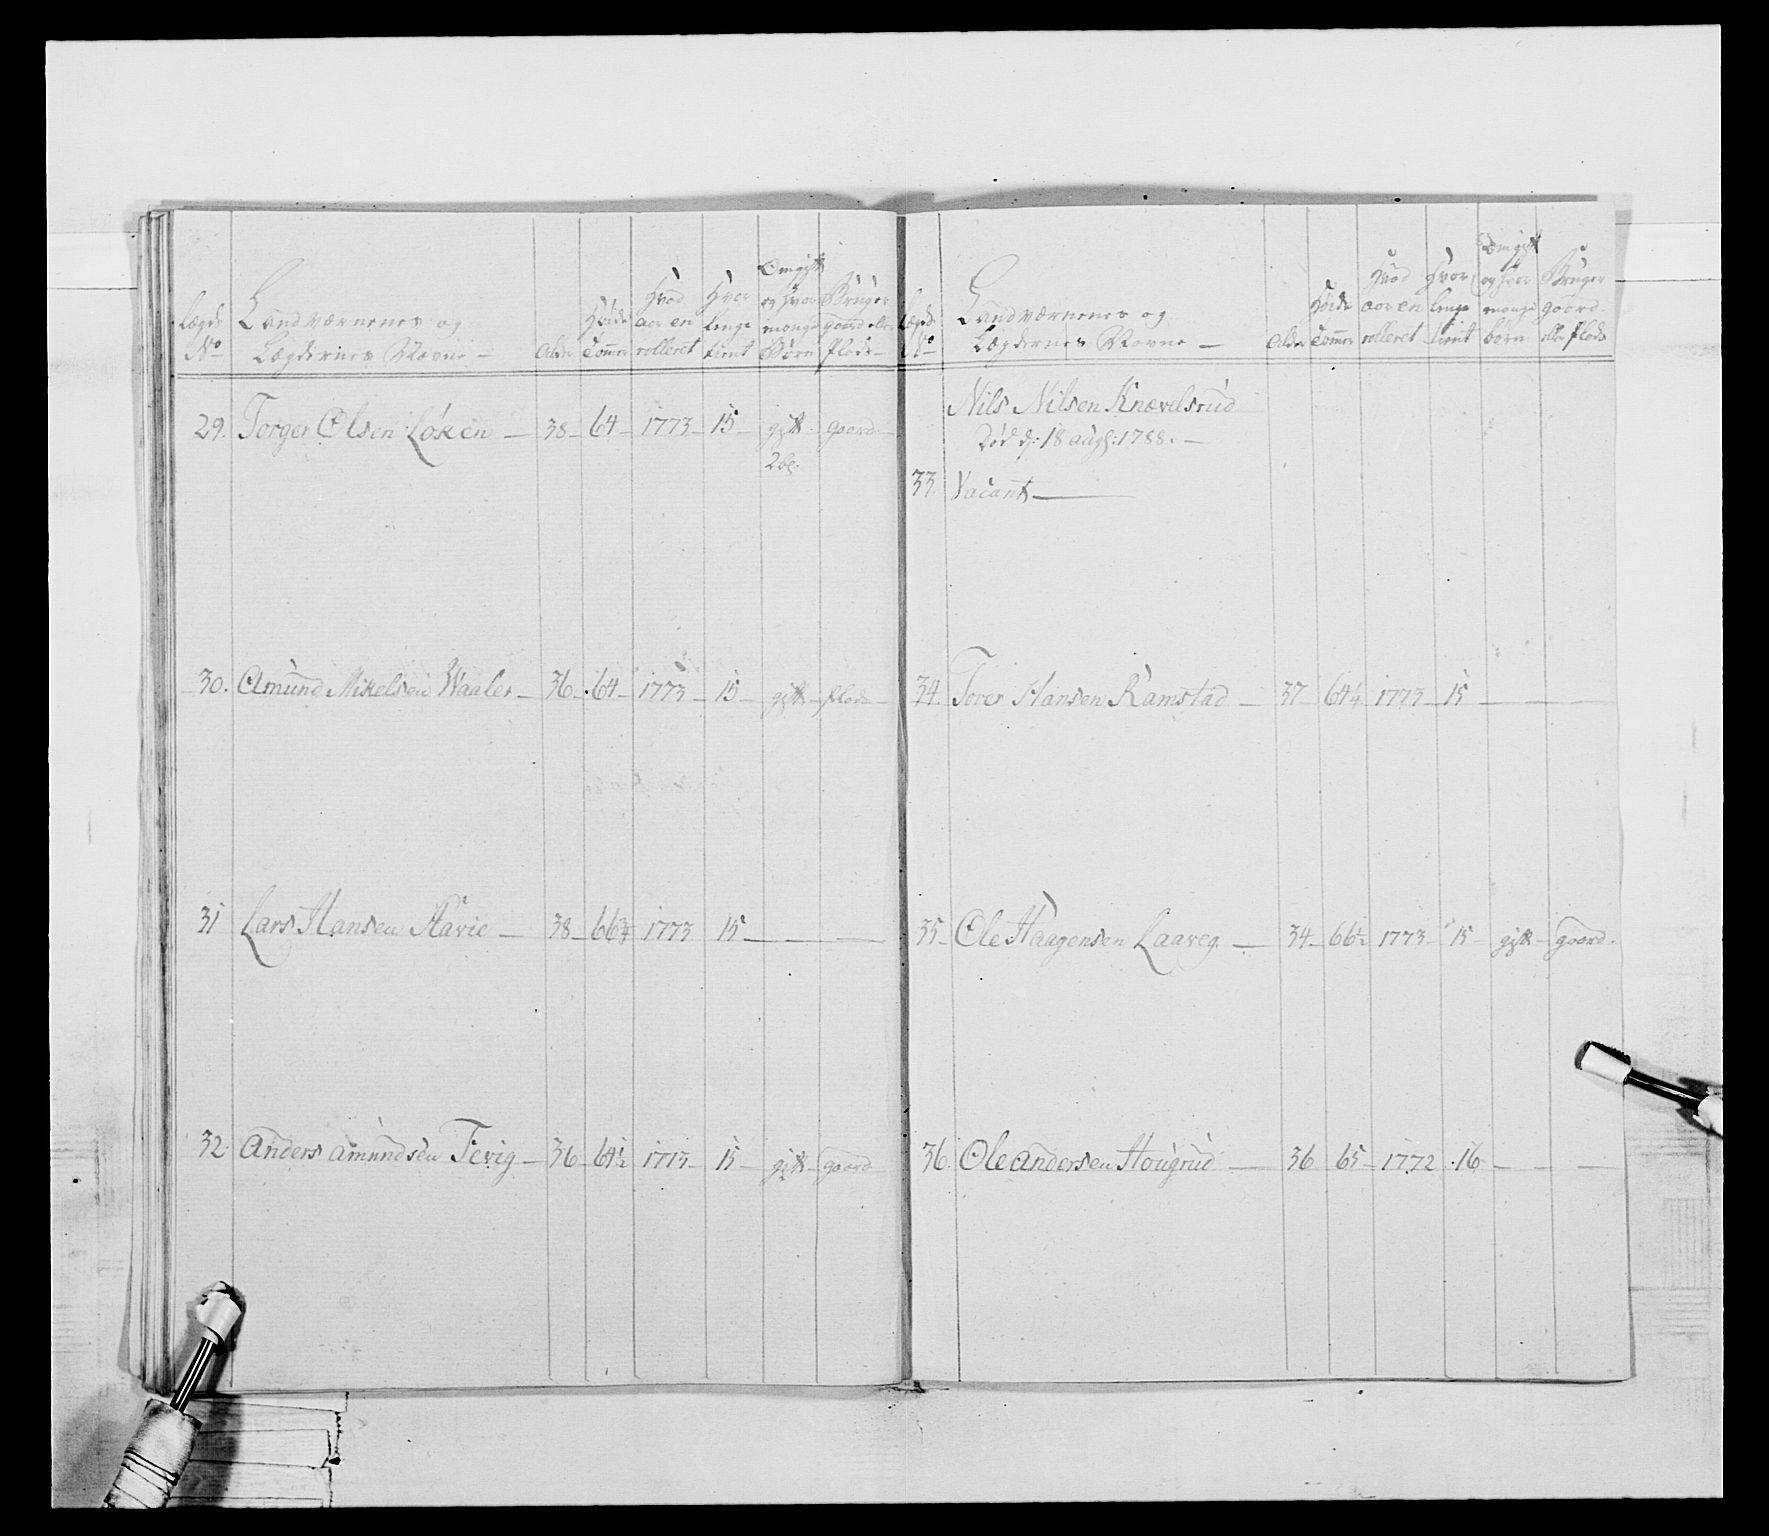 Lægds No
Landværnenes og Lægdernes Navne —
Alder
Höide Tommer
Hvad aar en rolleret
Hvor lenge tient
Om gift og hvor mange Börn
Bruger gaard eller Plads
29. Torger Olsen Löken — 38 — 64 — 1773 — 15 — gift gaard
2 b.
30. Amund Mikelsen Waaler — 36 — 64 — 1773 — 15 — gift — plads —
31 Lars Hansen Havie — 38 — 66¾ 1773 15 — — —
32. Anders Amundsen Tevig — 36 — 64½ 1773 — 15 — gift — gaard
Lægds No
Landværnenes og Lægdernes Navne —
Alder
Höide Tommer
Hvad aar en rolleret
Hvor lenge tient
Om gift og hvor mange börn
Bruger gaard eller Plads
Nils Nilsen Knævelsrud
Död d: 18 aug: 1788. —
33. Vacant —
34. Tores Hansen Ramstad — 37 — 64¼ 1773 — 15 — — —
35 — Ole Haagensen Laaveg — 34 — 66½ 1773 — 15 — gift — gaard.
36. Ole Andersen Hougrud — 36 65 — 1772 . 16 — — —